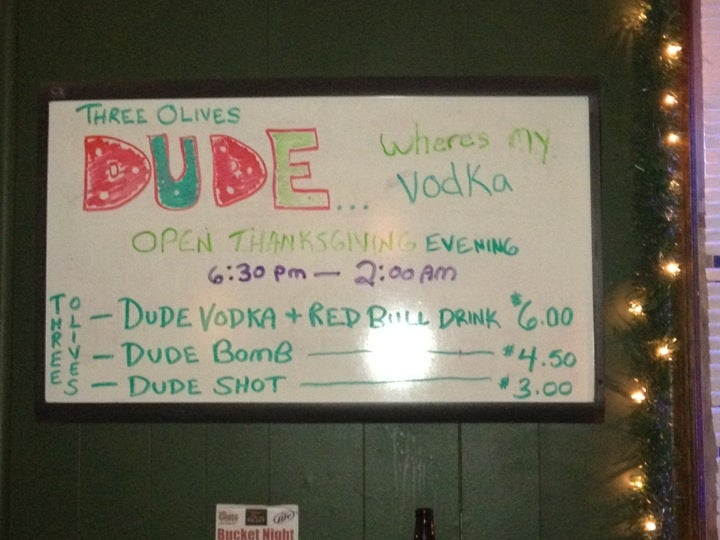 THREE OLIVES
DUDE... Wheres my
Vodka
OPEN THANKSGIVING EVENING
6:30 pm — 2:00 AM
THREE OLIVES
— DUDE VODKA + RED BULL DRINK $6.00
— DUDE BOMB — $4.50
— DUDE SHOT — $3.00
Bucket Night